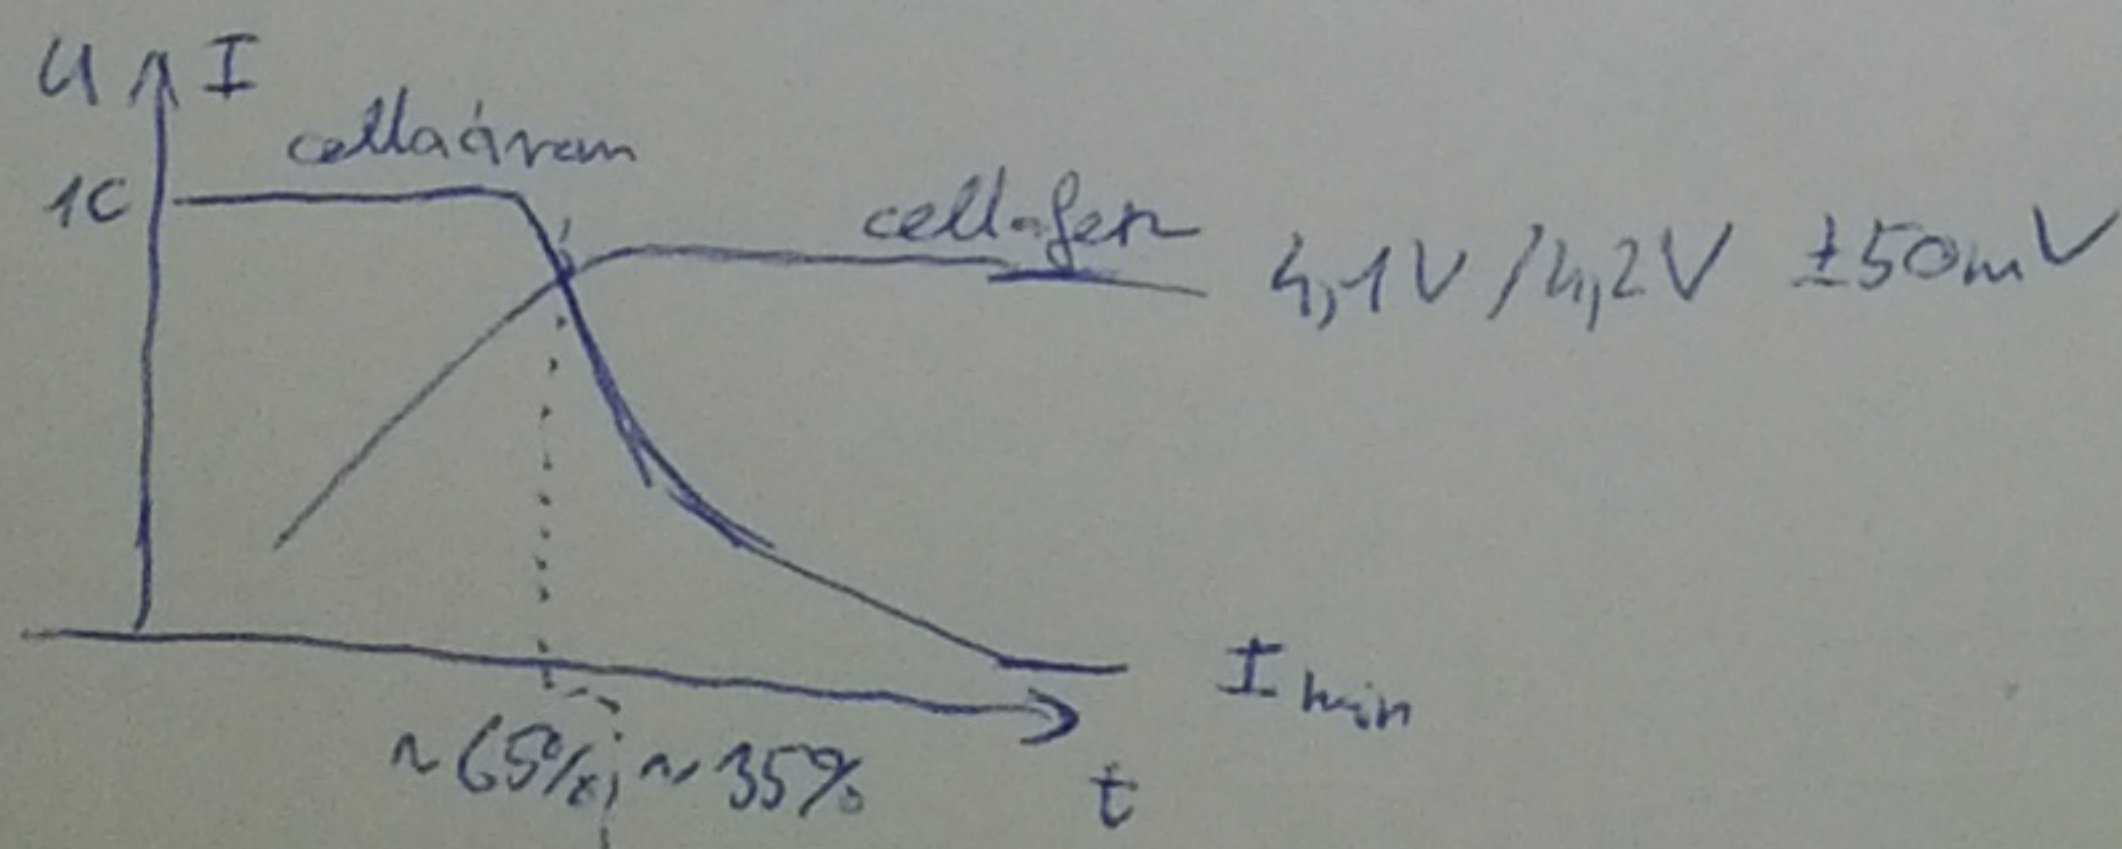 U I
cellaáram
1C
cellafesz
4,1V/4,2V ±50mV
Imin
~65% ~35%
t